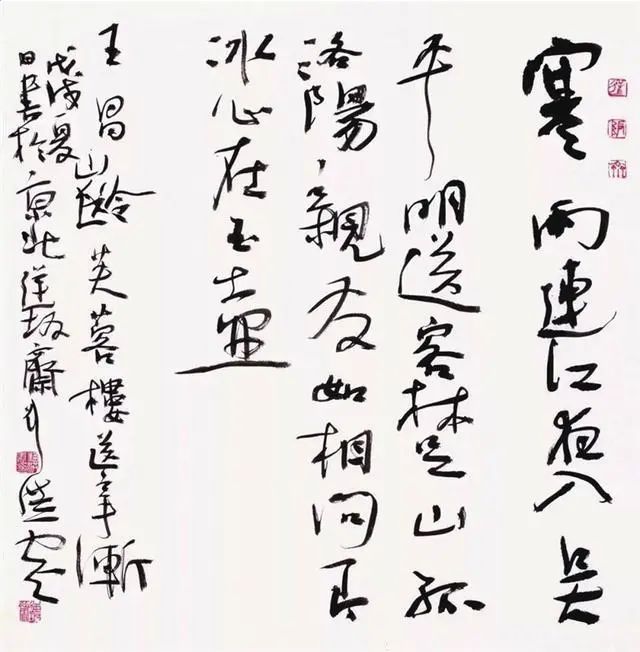 寒雨連江夜入吳
平明送客楚山孤
洛陽親友如相問一片
冰心在玉壺
王昌齡芙蓉樓送辛漸
戊戌夏
日書於京北齋